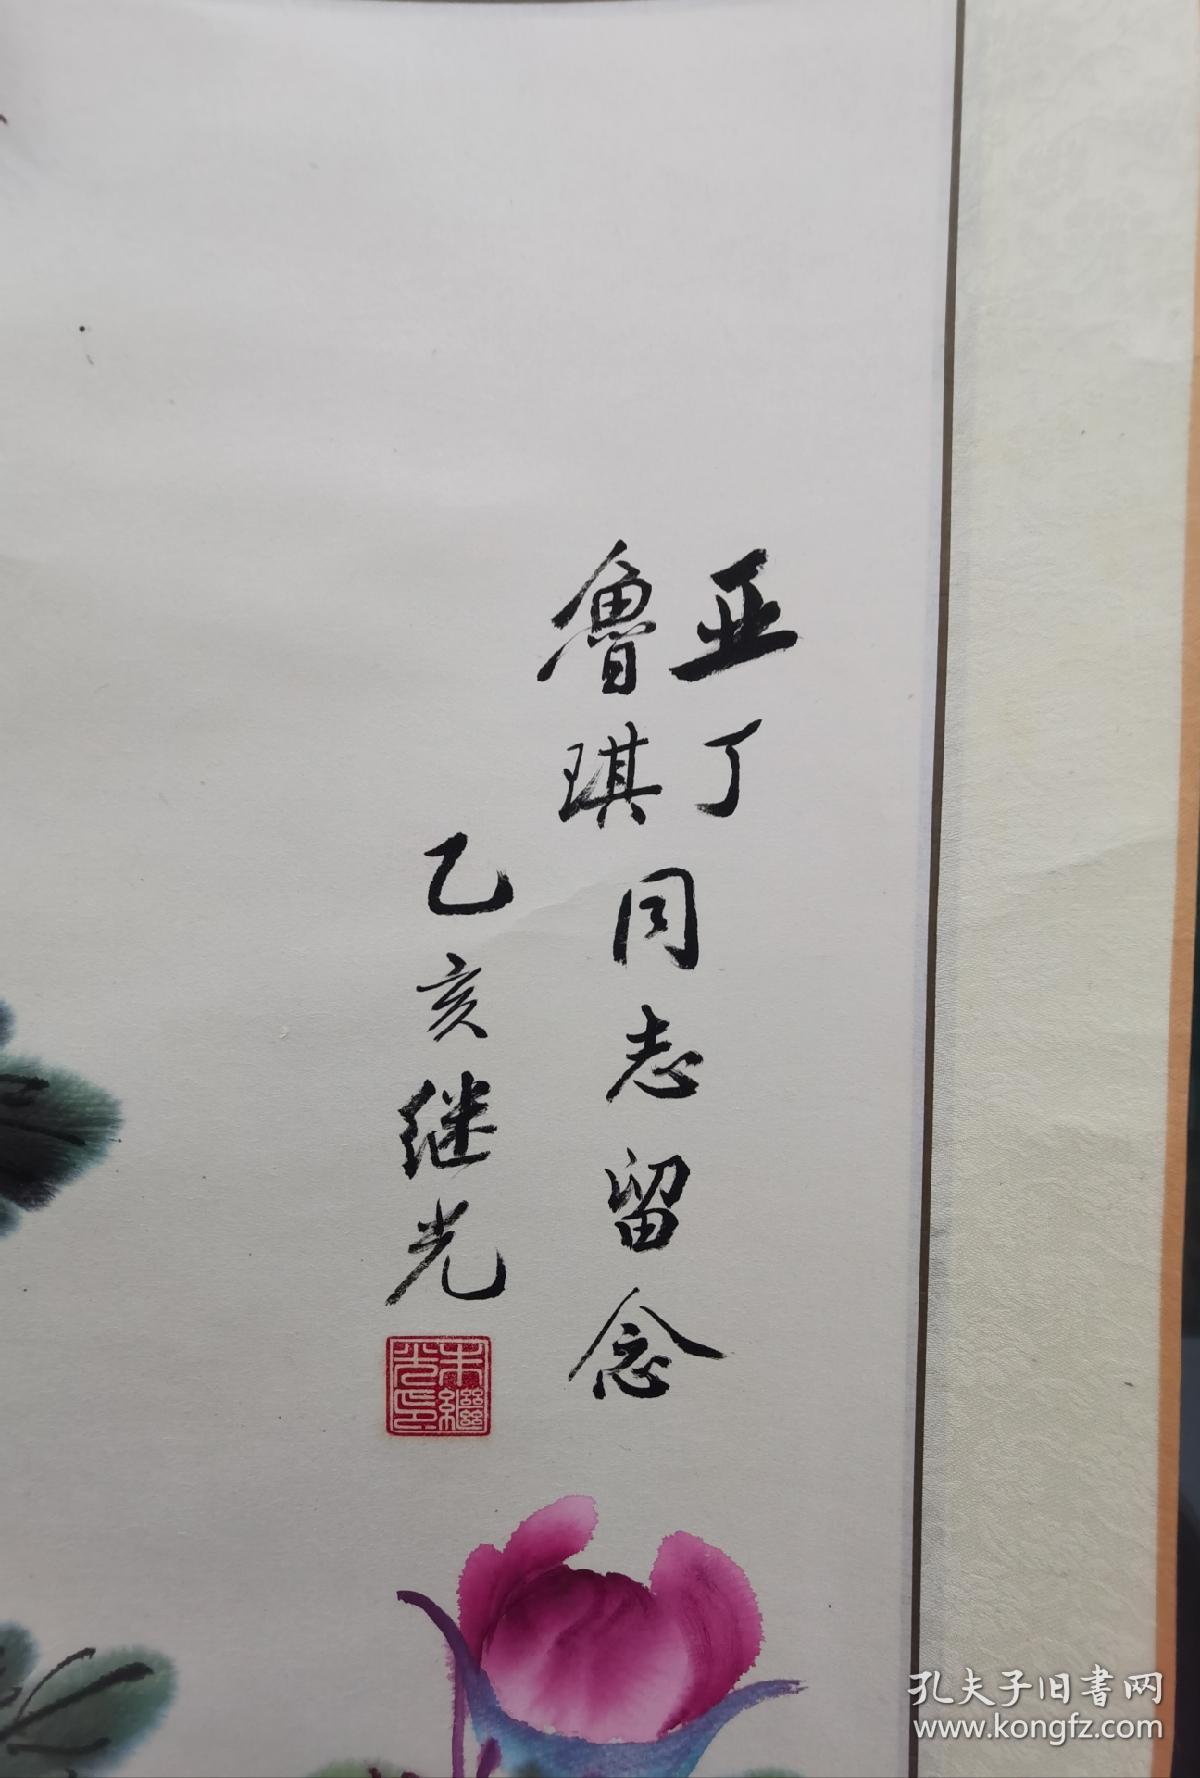 亚丁
魯琪同志留念
乙亥继光
朱繼光印
孔夫子旧書网
www.kongfz.com